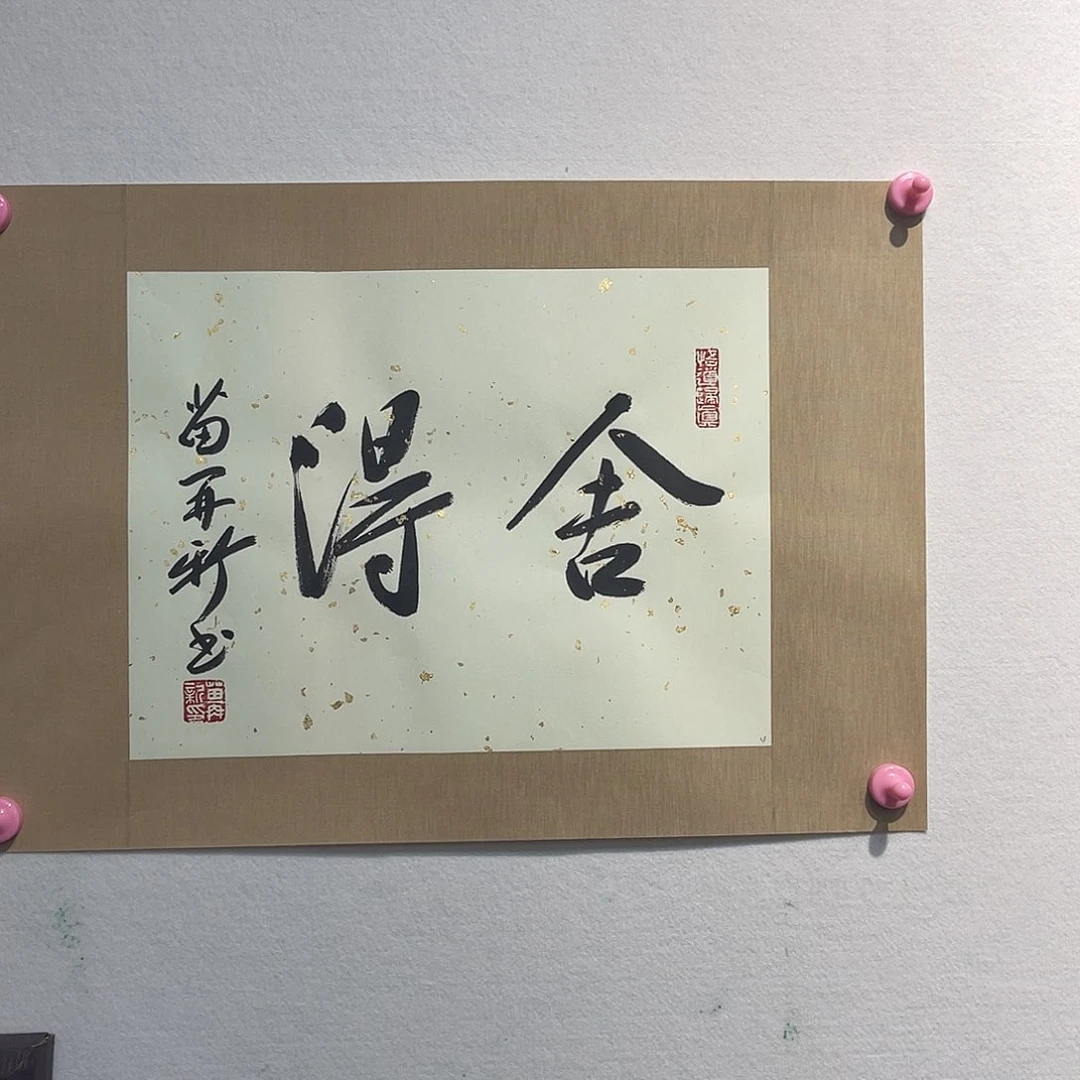 舍得
苗再新书
苗再
新印